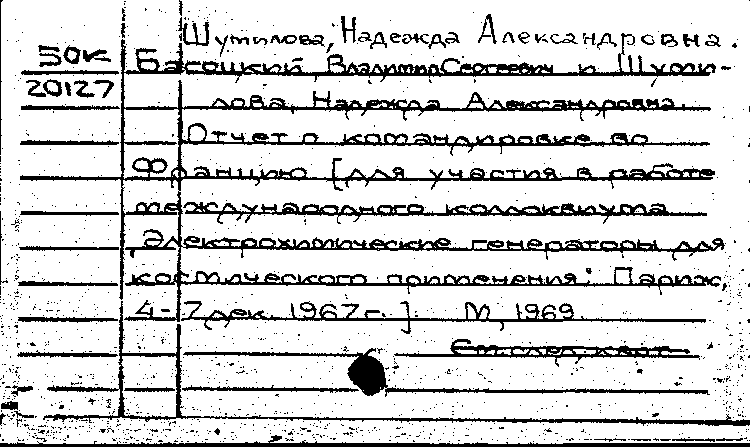 Шутилова, Надежда Александровна.
50к Басоцкий, Владимир Сергеевич и Шути-
20127 лова, Надежда Александровна.
Отчет о командировке во
Францию [для участия в работе
международного коллоквиума
„Электрохимические генераторы для
космического применения" Париж,
4-7 дек. 1967 г.] М, 1969.
См. след. карт.